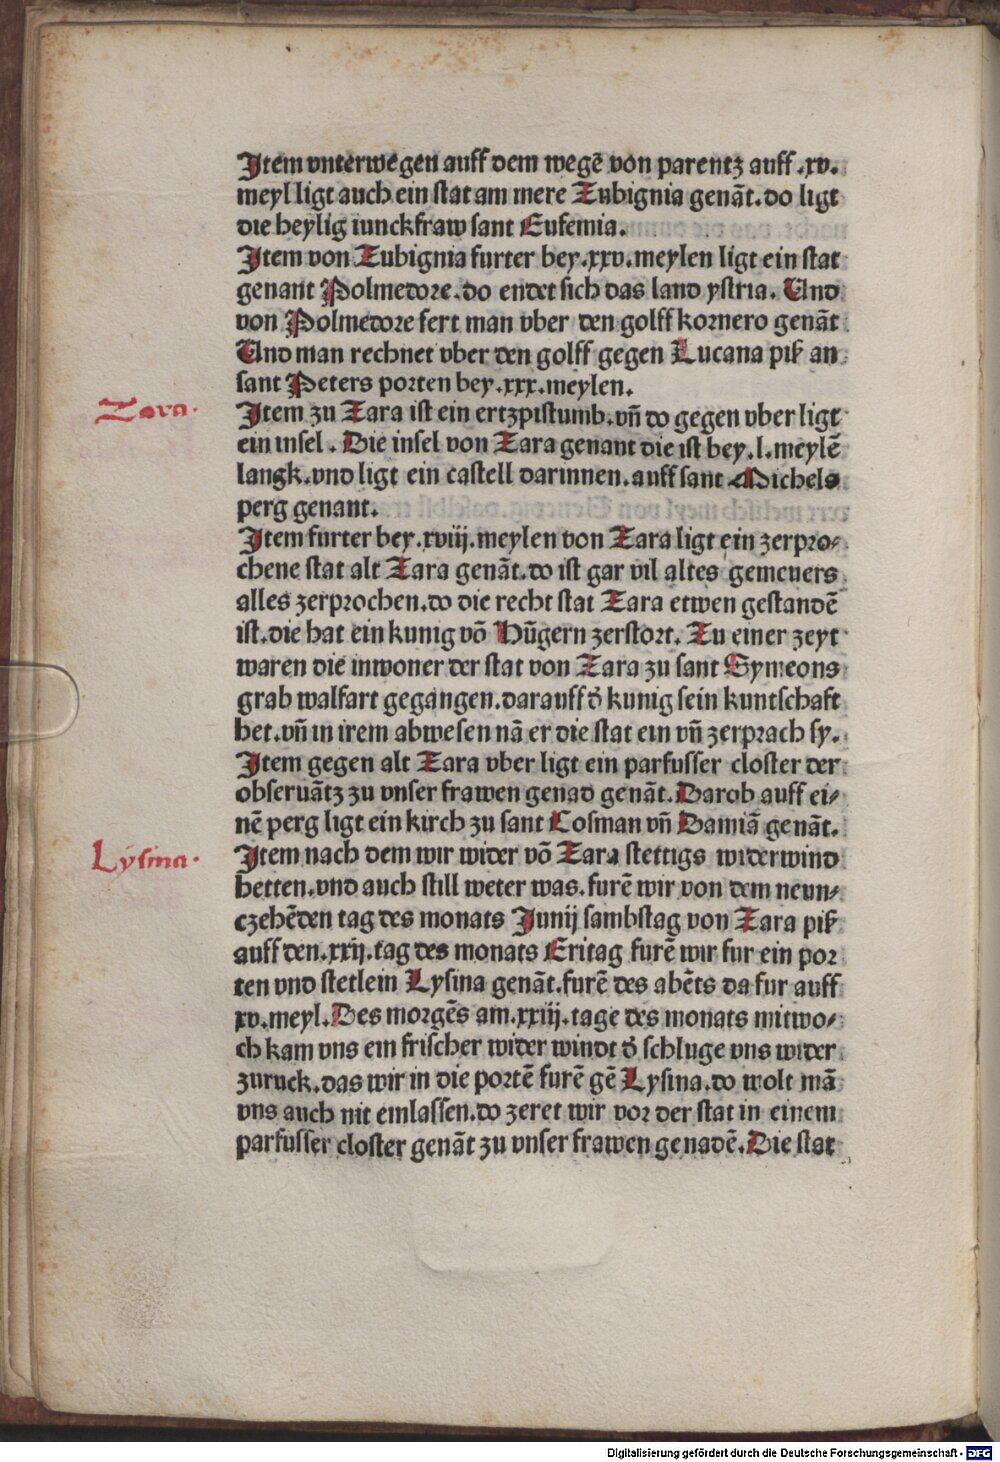 Item vnterwegen auff dem wegē von parentz auff .xv.
meyl ligt auch ein stat am mere Zubignia genāt. do ligt
die heylig iunckfraw sant Eufemia.
Item von Zubignia furter bey .xxv. meylen ligt ein stat
genant Polmedore. do endet sich das land ystria. Und
von Polmedore fert man vber den golff kornero genāt
Und man rechnet vber den golff gegen Lucana piß an
sant Peters porten bey .xxx. meylen.
Zara.
Item zu Zara ist ein ertzpistumb. vñ do gegen vber ligt
ein insel. Die insel von Zara genant die ist bey .l. meylē
langk. vnd ligt ein castell darinnen. auff sant Michels
perg genant.
Item furter bey .xviij. meylen von Zara ligt ein zerpro⸗
chene stat alt Zara genāt. do ist gar vil altes gemeuers
alles zerprochen. do die recht stat Zara etwen gestandē
ist. die hat ein kunig vō Hūgern zerstort. Zu einer zeyt
waren die inwoner der stat von Zara zu sant Symeons
grab walfart gegangen. darauff d̄ kunig sein kuntschaft
het. vñ in irem abwesen nā er die stat ein vñ zerprach sy.
Item gegen alt Zara vber ligt ein parfusser closter der
obseruātz zu vnser frawen genad genāt. Darob auff ei⸗
nē perg ligt ein kirch zu sant Cosman vñ Damiā genāt.
Lysina.
Item nach dem wir wider vō Zara stettigs widerwind
hetten. vnd auch still weter was. furē wir von dem neun⸗
czehēden tag des monats Junij sambstag von Zara piß
auff den .xxij. tag des monats Eritag furē wir fur ein por
ten vnd stetlein Lysina genāt. furē des abēts da fur auff
xv. meyl. Des morgēs am .xxiij. tage des monats mitwo⸗
ch kam vns ein frischer wider windt d̄ schluge vns wider
zuruck. das wir in die portē furē gē Lysina. do wolt mā
vns auch nit einlassen. do zeret wir vor der stat in einem
parfusser closter genāt zu vnser frawen genadē. Die stat
Digitalisierung gefördert durch die Deutsche Forschungsgemeinschaft - DFG